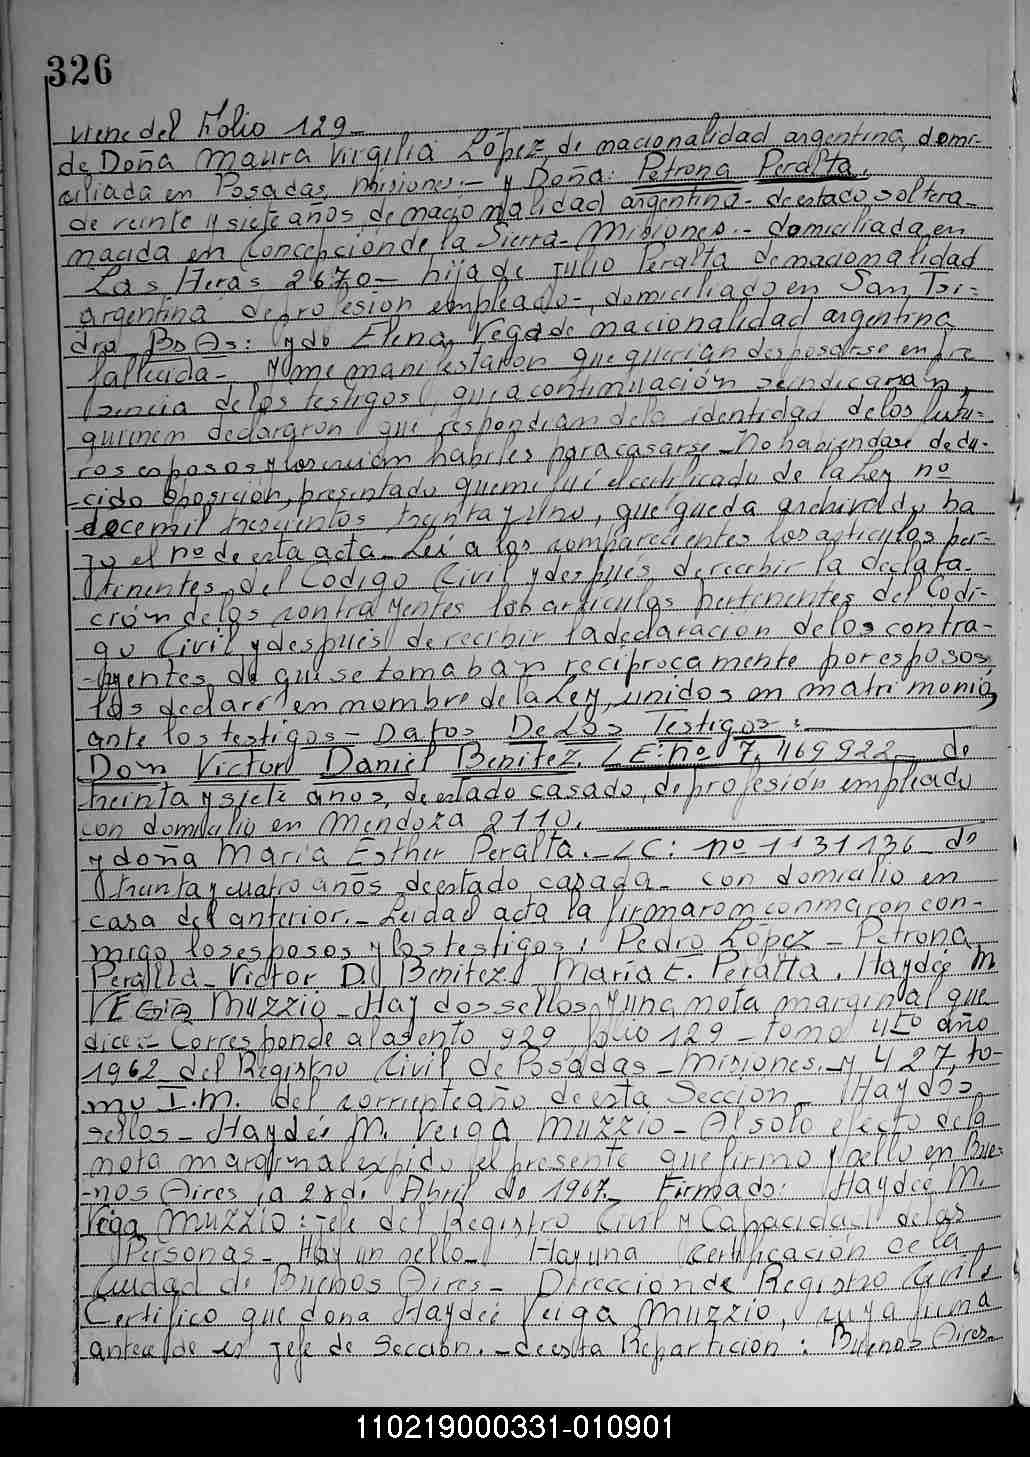 326
viene del Folio 129-
de Doña Maura Virgilia López, de nacionalidad argentina, domi-
ciliada en Posadas, Misiones.- y Doña: Petrona Peralta,
de veinte y siete años de nacionalidad argentina- de estado soltera-
nacida en Concepción de la Sierra- Misiones.- domiciliada en
Las Heras 2670- hija de Julio Peralta de nacionalidad
argentina de profesion empleado-, domiciliado en San Isi-
dro Bs As: y de Elena Vega de nacionalidad argentina
fallecida- y me manifestaron que querían desposarse en pre
sencia de los testigos, que a continuación se indicaran,
quienen declararon que respondian de la identidad de los futu-
ros esposos y los creian habiles para casarse- No habiendose dedu-
cido oposición, presentado que me fué el certificado de la Ley nº
doce mil trescientos treinta y uno, que queda archivado ba
jo el nº de esta acta- Leí a los comparecientes los articulos per-
tinentes del Código Civil y después de recibir la declara-
ción de los contrayentes los articulos pertinentes del Codi-
go Civil y después de recibir la declaracion de los contra-
yentes de que se tomaban reciprocamente por esposos,
los declaré en nombre de la Ley, unidos en matrimonio,
ante los testigos- Datos De Los Testigos:
Don Victor Daniel Benitez. LE: nº 7.469922- de
treinta y siete años, de estado casado, de profesión empleado
con domicilio en Mendoza 2110.
y doña María Esther Peralta.- LC: nº 1131136- de
treinta y cuatro años de estado casada- con domicilio en
casa del anterior.- Leida el acta la firmaron conmaron con-
migo, los esposos y los testigos: Pedro López- Petrona
Peralta- Victor D. Benitez- María E. Peralta. Haydée M
VEGIA Muzzio- Hay dos sellos y una nota marginal que
dice:- Corresponde al asento 929 folio 129- tomo 45º año
1962 del Registro Civil de Posadas- Misiones.- y 427, to-
mo I.M. del corriente año de esta Seccion- Hay dos
sellos- Haydée M. Veiga Muzzio- Al solo efecto de la
nota marginal expido el presente que firmo y sello en Bue-
nos Aires, a 28 de Abril de 1967- Firmado: Haydée M.
Veiga Muzzio: Jefe del Registro Civil y Capacidad de las
Personas- Hay un sello- Hay una certificación de la
Ciudad de Buenos Aires- Direccion de Registro Civil.
Certifico que dona Haydée Veiga Muzzio, cuya firma
antecede es Jefe de Sección.- de esta Repartición: Buenos Aires-
110219000331-010901